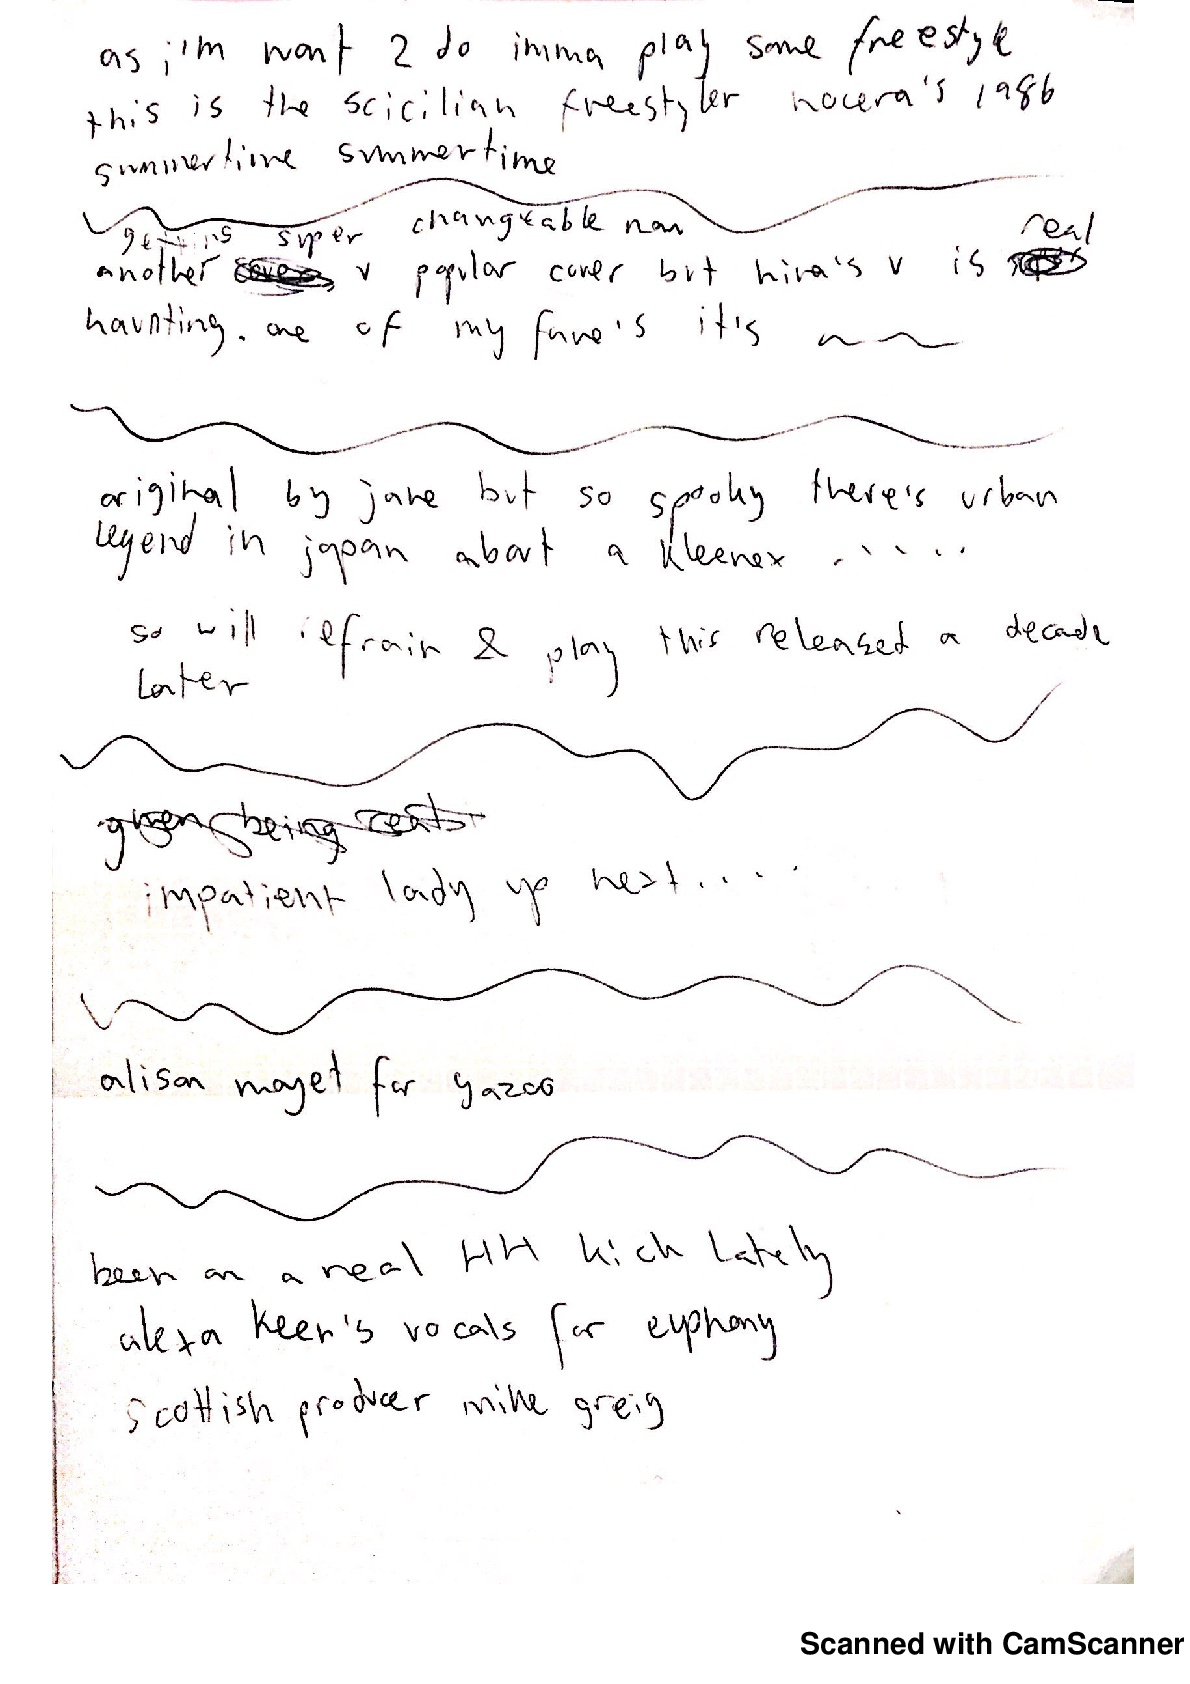 as i'm wont 2 do imma play some freestyle
this is the scicilian freestyler nocera's 1986
summertime summertime
getting super changeable now
another v popular cover but nina's v is real
haunting. one of my fave's it's
original by jane but so spooky there's urban
legend in japan about a kleenex .....
so will refrain & play this released a decade
later
given being
impatient lady up next.....
alison moyet for yazoo
been on a real HH kick lately
alexa keen's vocals for euphony
scottish producer mike greig
Scanned with CamScanner